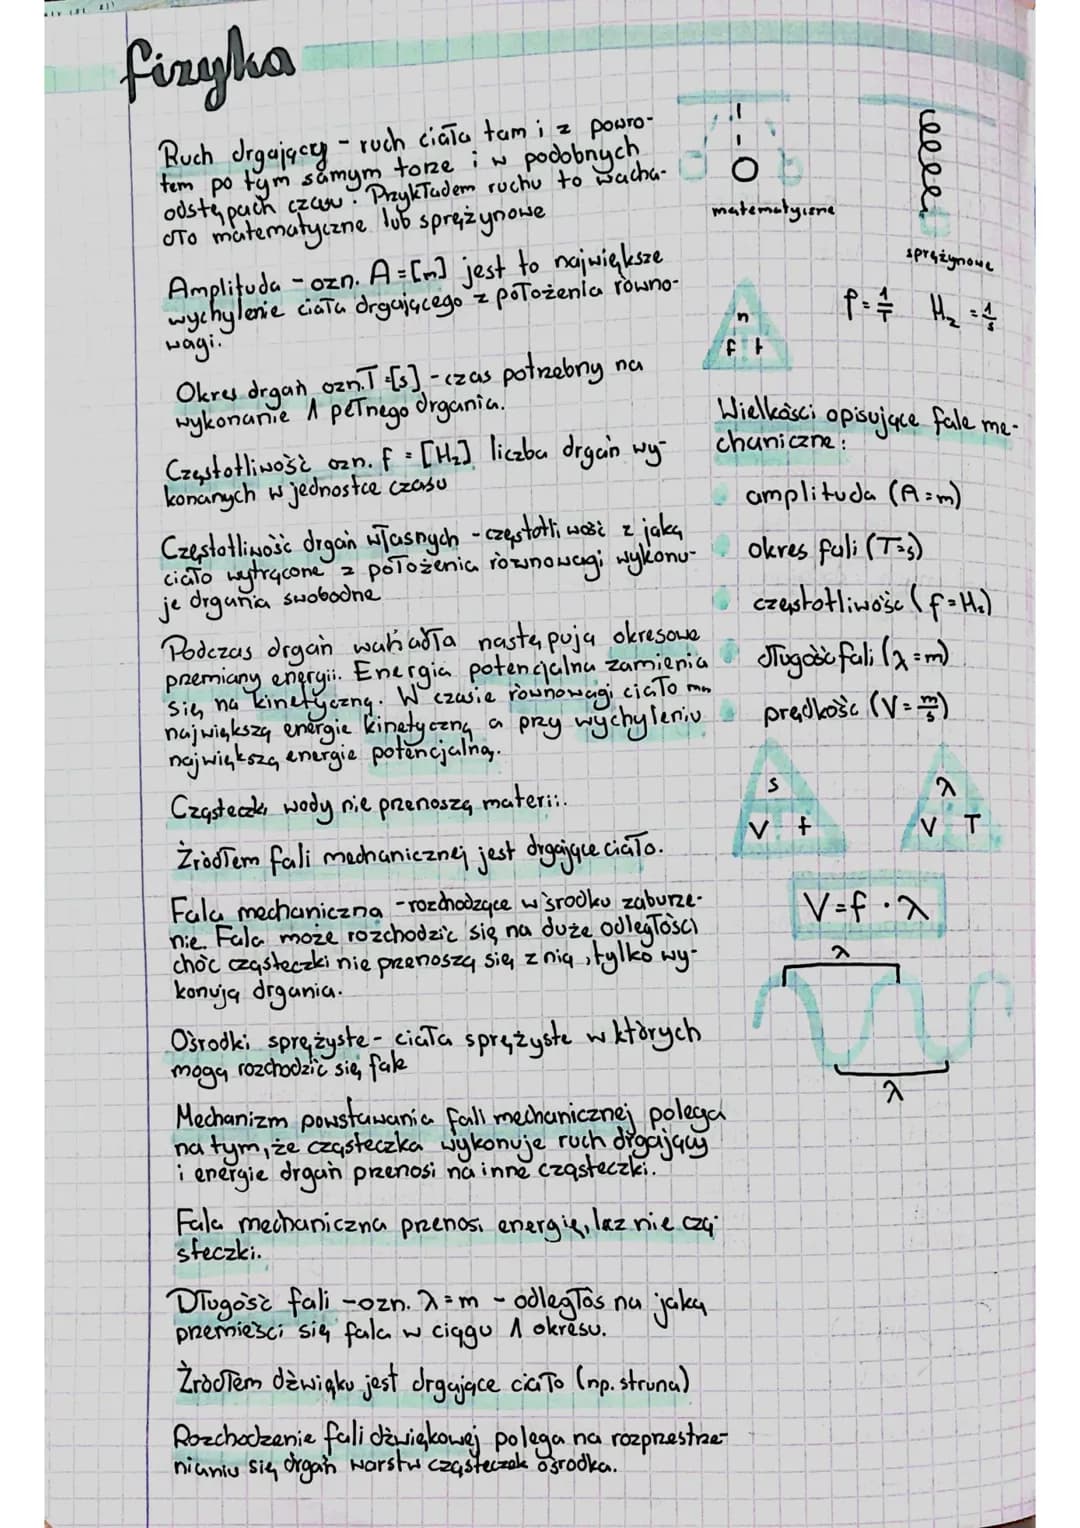 fizyka
Ruch drgający - ruch ciała tam i z powro-
tem po tym samym torze i w podobnych
odstępach czasu. Przykładem ruchu to wacha-
dło matematyczne lub sprężynowe
matematyczne
sprężynowe
Amplituda - ozn. A = [m] jest to największe
wychylenie ciała drgającego z położenia równo-
wagi.
n
f t
f = 1/T Hz = 1/s
Okres drgań ozn. T = [s] - czas potrzebny na
wykonanie 1 pełnego drgania.
Częstotliwość ozn. f = [Hz] liczba drgań wy-
konanych w jednostce czasu
Częstotliwość drgań własnych - częstotliwość z jaką
ciało wytrącone z położenia równowagi wykonu-
je drgania swobodne
Podczas drgań wahadła następują okresowe
przemiany energii. Energia potencjalna zamienia
się na kinetyczną. W czasie równowagi ciało ma
największą energie kinetyczną a przy wychyleniu
największą energie potencjalną.
Cząsteczki wody nie przenoszą materii.
Źródłem fali mechanicznej jest drgające ciało.
Fala mechaniczna - rozchodzące w środku zaburze-
nie. Fala może rozchodzić się na duże odległości
choć cząsteczki nie przenoszą się z nią, tylko wy-
konują drgania.
Ośrodki sprężyste - ciała sprężyste w których
mogą rozchodzić się fale
Mechanizm powstawania fali mechanicznej polega
na tym, że cząsteczka wykonuje ruch drgający
i energie drgań przenosi na inne cząsteczki.
Fala mechaniczna przenosi energię, lecz nie czą-
steczki.
Długość fali - ozn. λ = m - odległoś na jaką
przemieści się fala w ciągu 1 okresu.
Źródłem dźwięku jest drgające ciało (np. struna)
Rozchodzenie fali dźwiękowej polega na rozprzestrze-
nianiu się drgań warstw cząsteczek ośrodka.
Wielkości opisujące fale me-
chaniczne:
amplituda (A = m)
okres fali (T = s)
częstotliwość (f = Hz)
długość fali (λ = m)
prędkość (V = m/s)
s
V t
λ
V T
V = f · λ
λ
λ